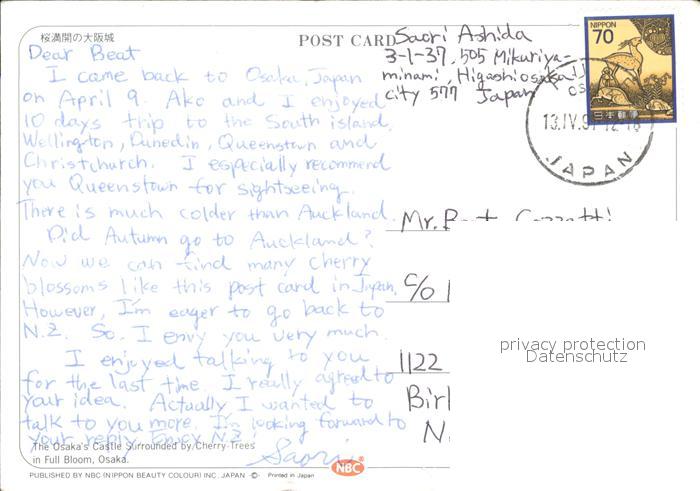 桜満開の大阪城
POST CARD
Dear Beat
I came back to Osaka, Japan
on April 9. Ako and I enjoyed
10 days trip to the South island,
Wellington, Dunedin, Queenstown and
Christchurch. I especially recommend
you Queenstown for sightseeing.
There is much colder than Auckland.
Did Autumn go to Auckland?
Now we can find many cherry
blossoms like this post card in Japan.
However, I'm eager to go back to
N.Z. So, I envy you very much.
I enjoyed talking to you
for the last time. I really agreed to
your idea. Actually I wanted to
talk to you more. I'm looking forward to
your reply. Enjoy N.Z.
Saori
The Osaka's Castle Surrounded by Cherry Trees
in Full Bloom, Osaka.
PUBLISHED BY NBC (NIPPON BEAUTY COLOUR) INC. JAPAN © Printed in Japan
NBC
Saori Ashida
3-1-37, 505 Mikuriya-
minami, Higashiosaka
city 577 Japan
NIPPON
70
日本郵便
13.IV.9
12-18
JAPAN
Mr.
c/o
1122
privacy protection
Datenschutz
Birl
N